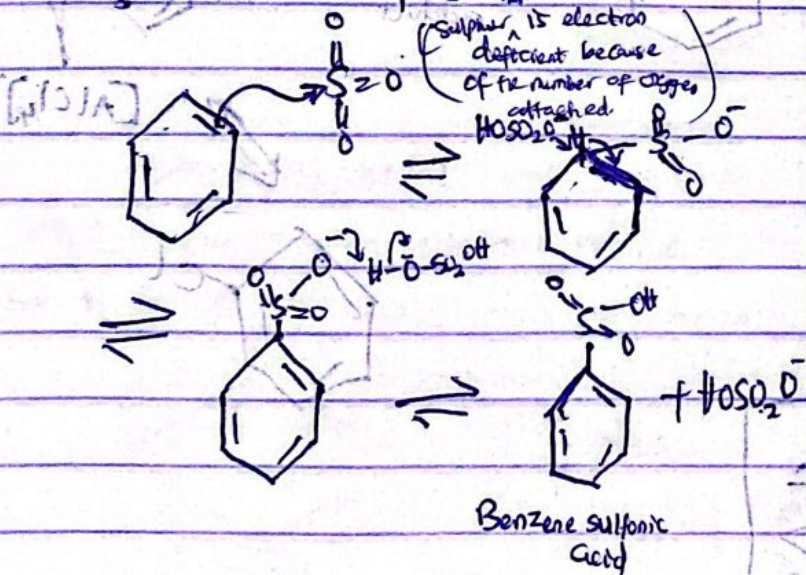 O
(Sulphur is electron
deficient because
S = O
of the number of oxygen
attached.)
O
HOSO₂O⁻ H
O
S - O⁻
O
O⁻
O
S=O
H-O-SO₂OH
O
S - OH
O
+ HOSO₂O⁻
Benzene sulfonic
acid